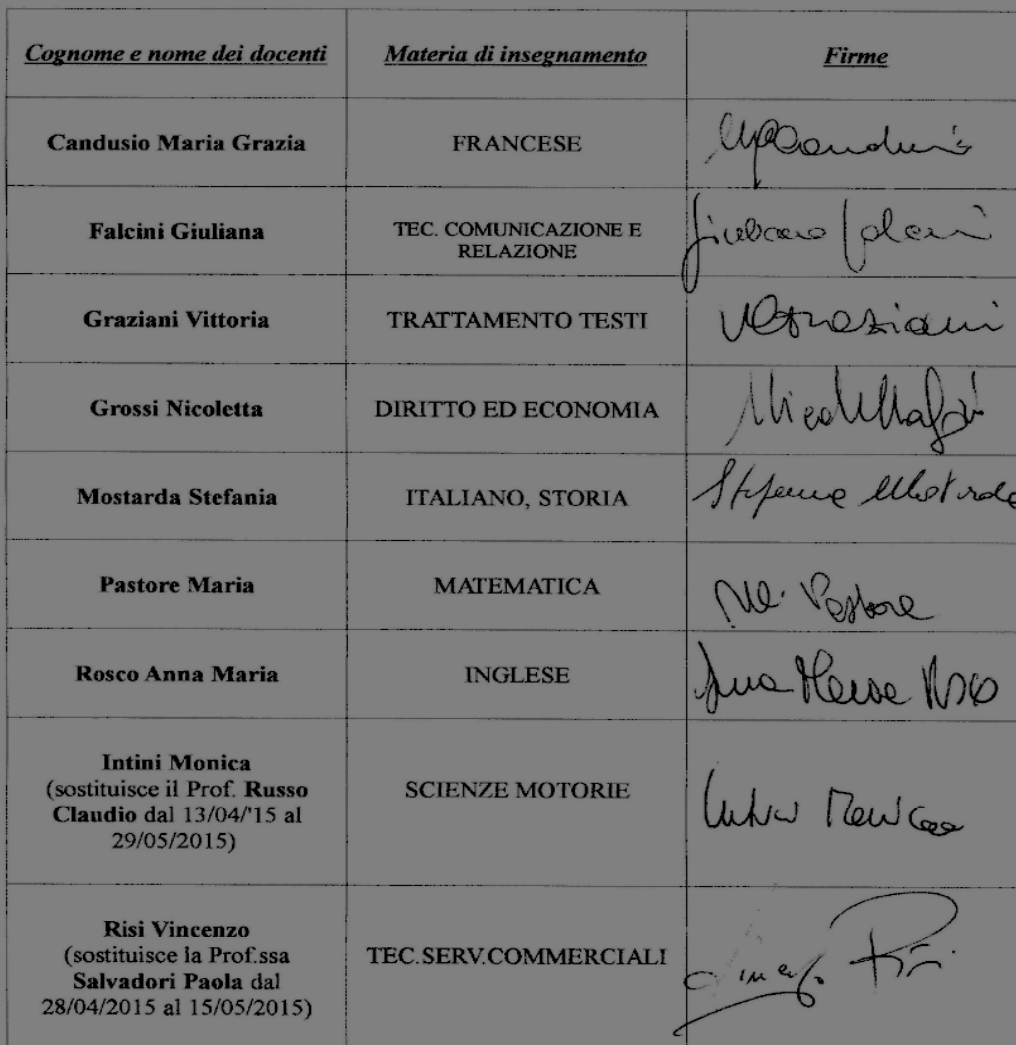 Cognome e nome dei docenti
Materia di insegnamento
Firme
Candusio Maria Grazia
FRANCESE
Falcini Giuliana
TEC. COMUNICAZIONE E
RELAZIONE
Giuliana Falcini
Graziani Vittoria
TRATTAMENTO TESTI
VGraziani
Grossi Nicoletta
DIRITTO ED ECONOMIA
Mostarda Stefania
ITALIANO, STORIA
Stefania Mostarda
Pastore Maria
MATEMATICA
Ma. Pastore
Rosco Anna Maria
INGLESE
Anna Maria Rosco
Intini Monica
(sostituisce il Prof. Russo
Claudio dal 13/04/'15 al
29/05/2015)
SCIENZE MOTORIE
Intini Monica
Risi Vincenzo
(sostituisce la Prof.ssa
Salvadori Paola dal
28/04/2015 al 15/05/2015)
TEC.SERV.COMMERCIALI
Vincenzo Risi